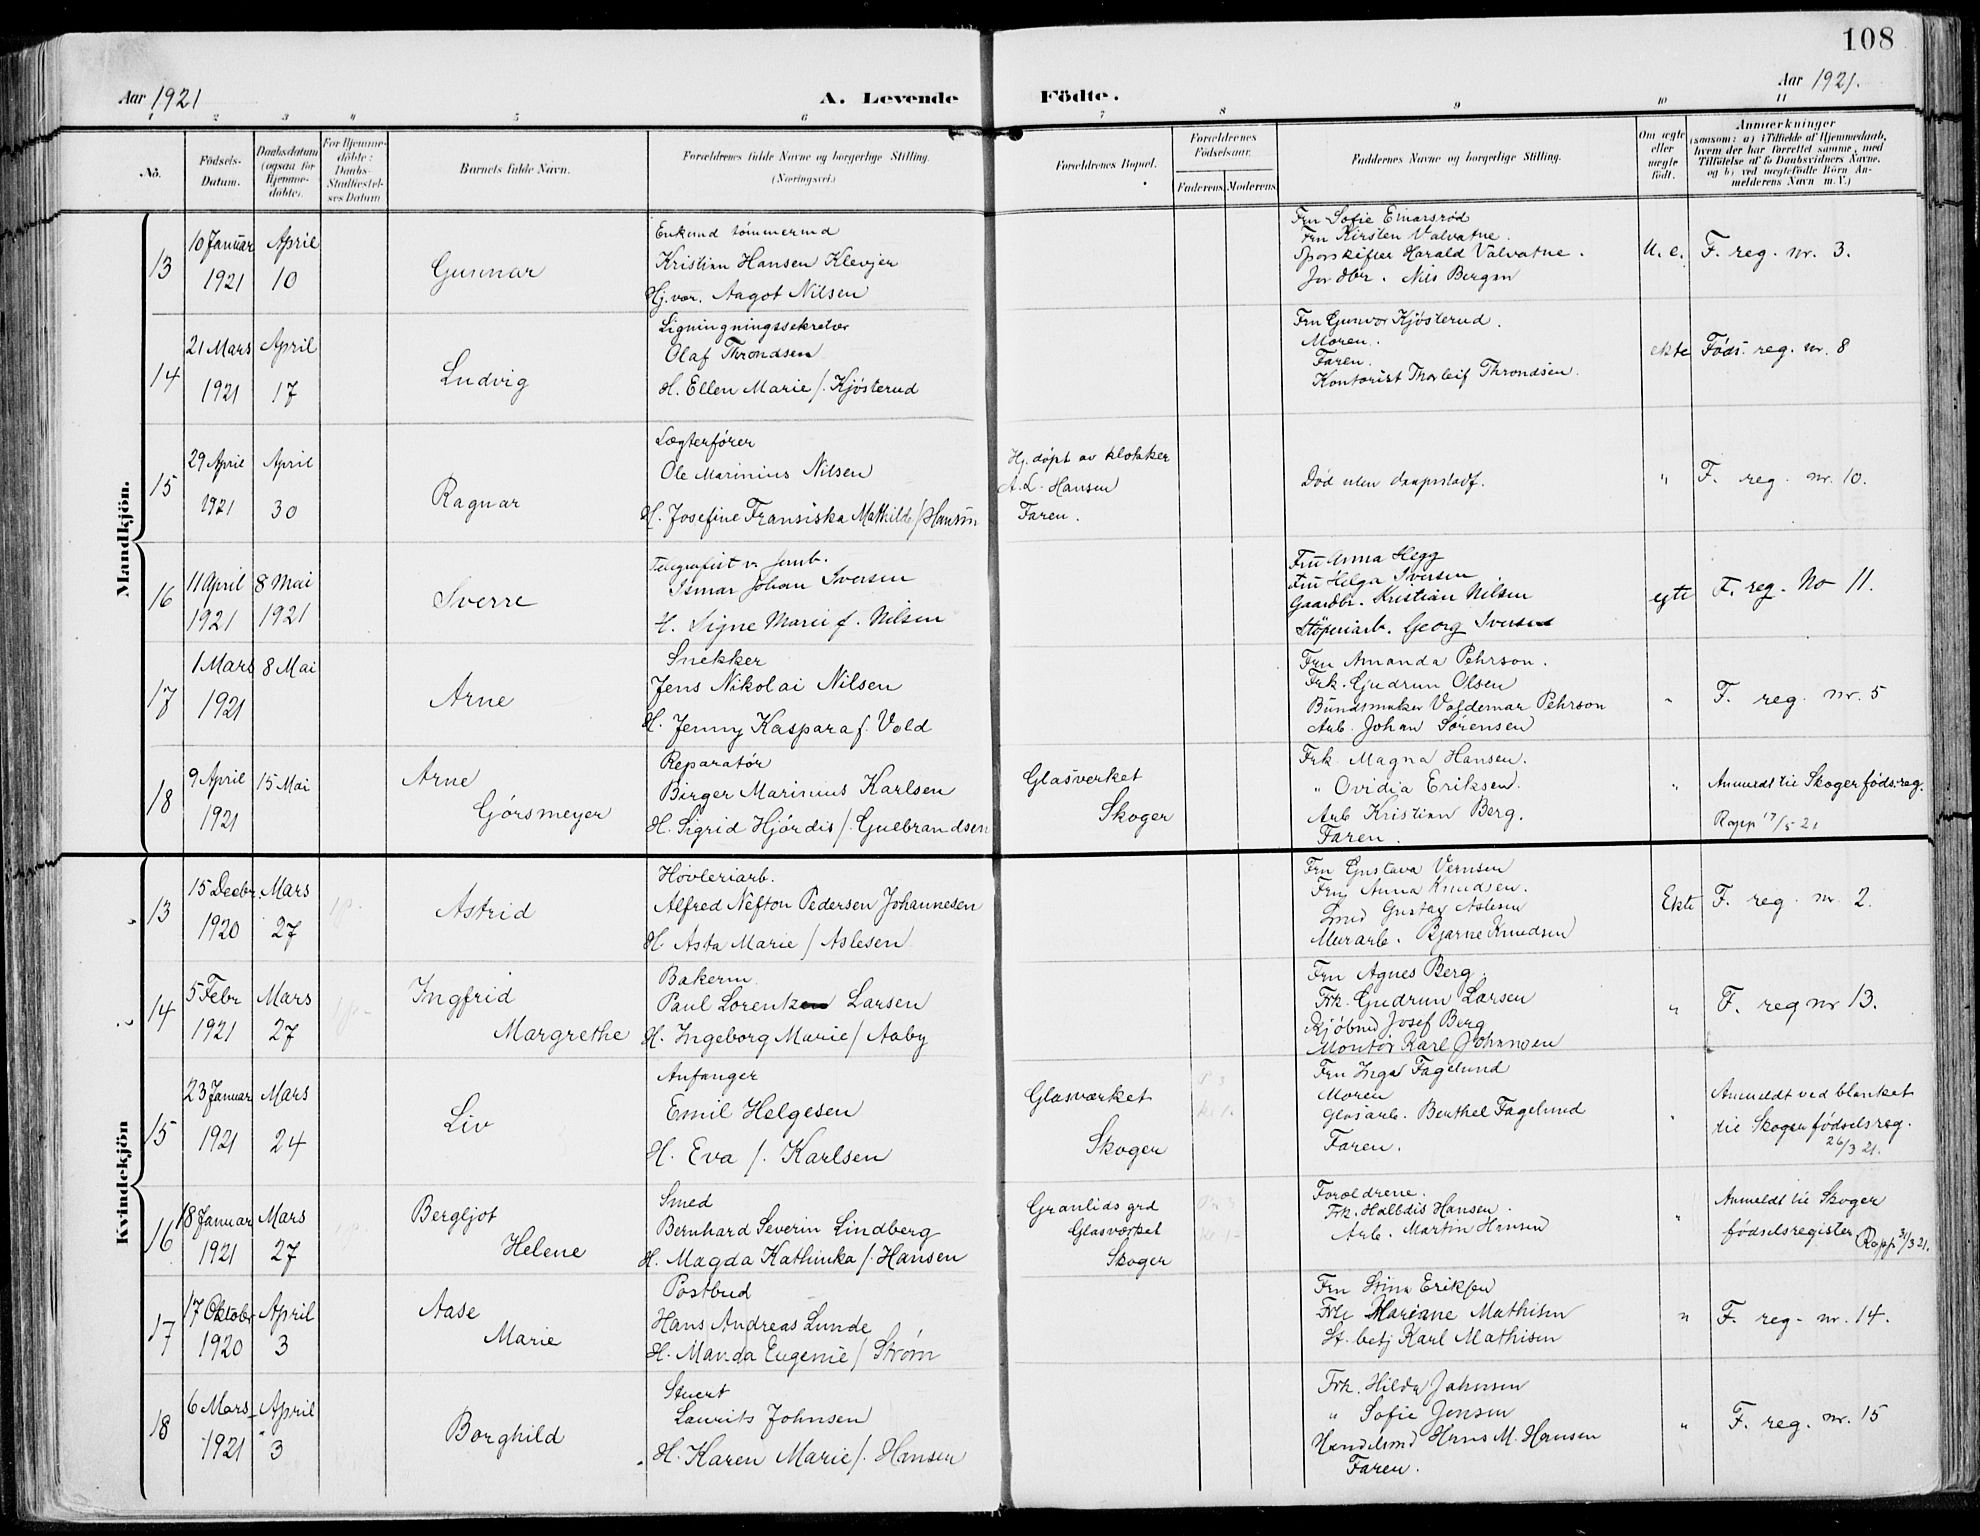 108
Aar 1921
A. Levende Födte.
Aar 1921.
1 2 3 4 5 6 7 8 9 10 11
No.
Födsels-Datum.
Daabsdatum (ogsaa for Hjemme-döbte).
For Hjemme-döbte: Daabs-Stadfæstel-ses Datum
Barnets fulde Navn.
Forældrenes fulde Navne og borgerlige Stilling.
(Næringsvei.)
Forældrenes Bopæl.
Forældrenes Födselsaar.
Faderens. Moderens.
Faddernes Navne og borgerlige Stilling.
Om ægte eller uægte födt.
Anmærkninger
(saasom: a) i Tilfælde af Hjemmedaab, hvem der har forrettet samme, med Tilföielse af to Daabsvidners Navne, og b) ved uægtefödte Börn An-melderens Navn m. V.)
Mandkjön.
13
10 Januar 1921
April 10
Gunnar
Enkemd tømmermd
Kristian Hansen Klevjer
Hj.vær. Aagot Nilsen
Fru Sofie Einarsrød
Fru Kirsten Valvatne.
Sporskifter Harald Valvatne.
Jordbr. Nils Bergan
U. e.
F. reg. nr. 3.
14
21 Mars 1921
April 17
Ludvig
Ligningningssekretær
Olaf Throndsen
H. Ellen Marie f. Kjøsterud
Fru Gunvor Kjøsterud.
Moren.
Faren.
Kontorist Thorleif Throndsen.
ekte
Føds. reg. nr. 8
15
29 April 1921
April 30
Ragnar
Lægterfører
Ole Marinius Nilsen
H. Josefine Fransiska Mathilde f. Hansen
Hj. døpt av klokker
A. L. Hansen
Faren.
Død uten daapsstadf.
"
F. reg. nr. 10.
16
11 April 1921
8 Mai 1921
Sverre
Telegrafist v. Jernb.
Ismar Johan Iversen
H. Signe Marie f. Nilsen
Fru Anna Hegg
Fru Helga Iversen
Gaardbr. Kristian Nilsen
Støperiarb. Georg Iversen
egte
F. reg. No 11.
17
1 Mars 1921
8 Mai
Arne
Snekker
Jens Nikolai Nilsen
H. Jenny Kaspara f. Vold
Fru Amanda Pehrson.
Frk. Gudrun Olsen
Buntmaker Valdemar Pehrson
Arb. Johan Sørensen
"
F. reg. nr. 5
18
9 April 1921
15 Mai
Arne
Görsmeyer
Reparatør
Birger Marinius Karlsen
H. Sigrid Hjørdis f. Gulbrandsen
Glasverket
Skoger
Frk. Magna Hansen.
" Ovidia Eriksen.
Arb Kristian Berg.
Faren.
"
Anmeldt til Skoger føds.reg.
Rapp 17/5 21
Kvindekjön
13
15 Decbr. 1920
Mars 27
Astrid
Høvleriarb.
Alfred Nefton Pedersen Johannesen
H. Asta Marie f. Aslesen
Fru Gustava Vernsen
Fru Anna Knudsen.
Smed Gustav Aslesen
Murarb. Bjarne Knudsen
Ekte
F. reg. nr. 2.
14
5 Febr 1921
Mars 27
Ingfrid
Margrethe
Bakerm.
Paul Lorentzen Larsen
H. Ingeborg Marie f. Aaby
Fru Agnes Berg.
Frk. Gudrun Larsen
Kjøbmd Josef Berg
Montør Karl Johansen
"
F. reg nr 13.
15
23 Januar 1921
Mars 24
Liv
Anfanger
Emil Helgesen
H. Eva f. Karlsen
Glasværket
Skoger
Fru Inga Fagelund
Moren
Glasarb. Berthel Fagelund
Faren.
"
Anmeldt ved blanket
til Skoger fødselsreg.
26/3 21.
16
18 Januar 1921
Mars 27
Bergljot
Helene
Smed
Bernhard Severin Lindberg
H. Magda Kathinka f. Hansen
Granlids grd
Glasværket
Skoger
Forældrene.
Frk. Halldis Hansen.
Arb. Martin Hansen
"
Anmeldt til Skoger
fødselsregister Rapp 31/3 21.
17
17 Oktobr 1920
April 3
Aase
Marie
Postbud
Hans Andreas Lunde
H. Manda Eugenie f. Strøm
Fru Stina Eriksen
Frk Mariane Mathisen
St. betj Karl Mathisen
"
F. reg. nr. 14.
18
6 Mars 1921
April 3
Borghild
Stuert
Laurits Johnsen
H. Karen Marie f. Hansen
Frk. Hilda Johnsen
" Sofie Jensen
Handelsmd Hans M. Hansen
Faren.
"
F. reg. nr. 15